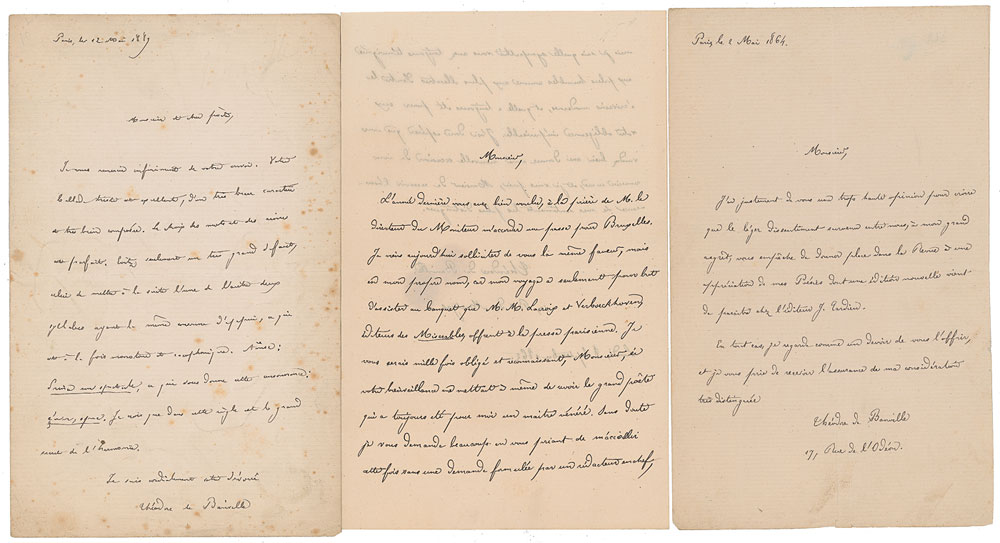 Paris, le 12 Mai 1889
Monsieur et cher poète,
Je vous remercie infiniment de votre envoi. Votre
est excellent, d'un très beau caractère
et très bien composé. Le choix des mots et des rimes
est parfait. Évitez seulement un très grand défaut,
celui de mettre à la suite l'une de l'autre deux
syllabes ayant le même
est à la fois monotone et
je vois que dans cette
de l'harmonie.
Je suis cordialement votre dévoué
Théodore de Banville
Monsieur,
L'année dernière vous avez bien voulu, à la prière de M. le
directeur du Moniteur m'accorder un passe pour Bruxelles.
Je viens aujourd'hui solliciter de vous la même faveur, mais
en mon propre nom, car mon voyage a seulement pour but
d'assister au banquet que M. M. Lacroix et Verboeckhoven,
éditeurs des Misérables offrent à la presse parisienne. Je
vous serais mille fois obligé et reconnaissant, Monsieur, si
votre bienveillance me mettait à même de revoir le grand poète
qui a toujours été pour moi un maître vénéré. Sans doute
je vous demande beaucoup en vous priant de m'accueillir
cette fois sans une demande formulée par un rédacteur en chef,
Paris, le 2 Mai 1864.
Monsieur,
J'ai justement de vous une trop haute opinion pour croire
que le léger dissentiment survenu entre nous, à mon grand
regret, vous empêche de donner place dans la Revue à une
appréciation de mes Poésies dont une édition nouvelle vient
de paraître chez l'éditeur J. Tardieu.
En tout cas, je regarde comme un devoir de vous l'offrir,
et je vous prie de recevoir l'assurance de ma considération
très distinguée
Théodore de Banville
17, Rue de l'Odéon.